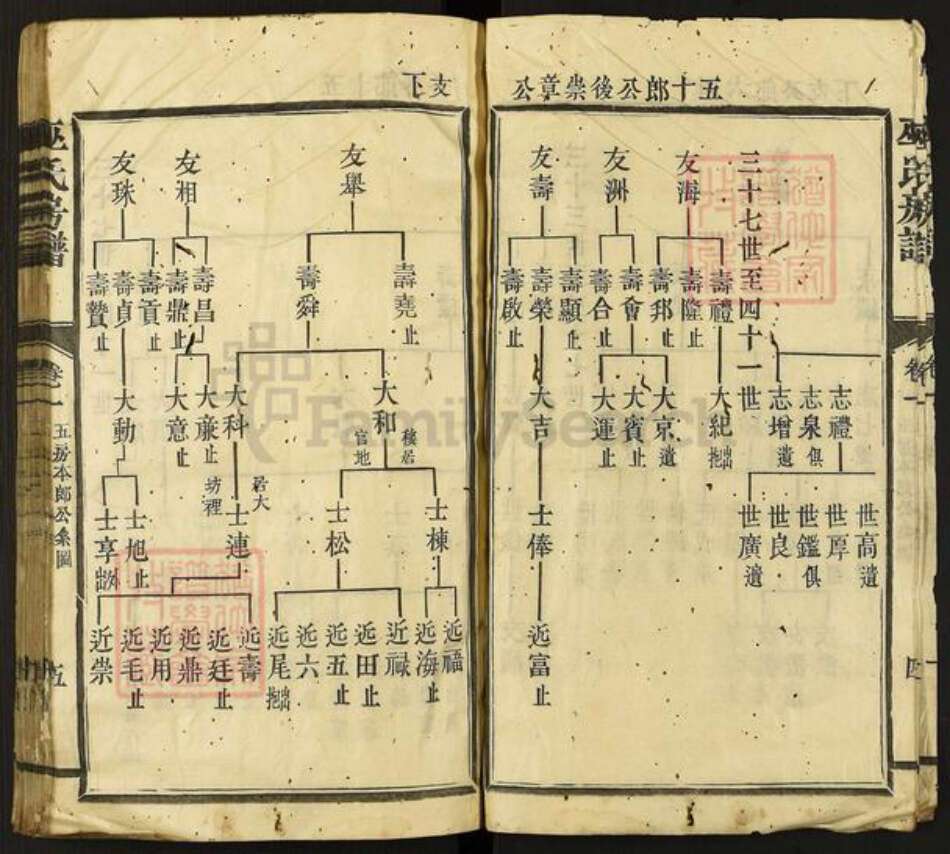 五十郎公後崇章公
支下
志禮
志泉俱
志增遺
世高遺
世厚止
世鑑俱
世良止
世廣遺
三十七世至四十一世
友海
友洲
友壽
壽禮
壽隆止
壽邦止
壽會
壽合止
壽顯止
壽榮
壽啟止
大紀
大京遺
大賓止
大運止
大吉
士俸
近富止
友舉
友相
友珠
壽堯止
壽舜
壽昌
壽鼎止
壽貢止
壽貞
壽贊止
大和
穫居
官地
大科
居大
坊裡
大廉止
大意止
大動
士棟
士松
士連
士旭止
士享
近福
近海止
近祿
近田止
近五止
近六
近尾
近壽
近廷止
近鼎
近用
近毛止
近崇
巫氏房譜
卷一
五房本郎公系圖
五
FamilySearch